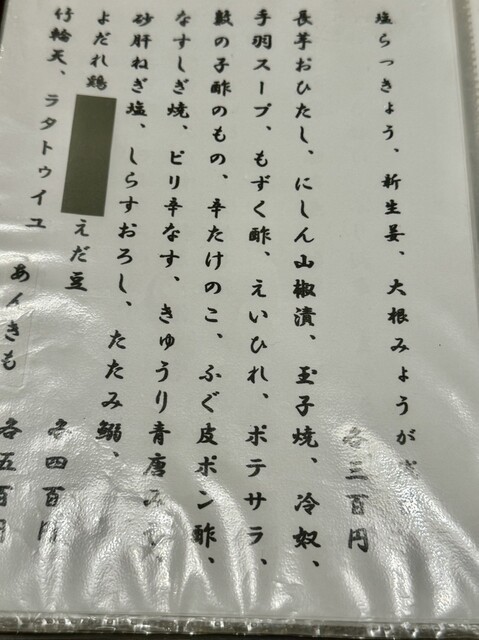 塩らっきょう、新生姜、大根みょうが
各三百円
長芋おひたし、にしん山椒漬、玉子焼、冷奴、
手羽スープ、もずく酢、えいひれ、ポテサラ、
数の子酢のもの、辛たけのこ、ふぐ皮ポン酢、
なすしぎ焼、ピリ辛なす、きゅうり青唐みそ、
砂肝ねぎ塩、しらすおろし、たたみ鰯、
よだれ鶏 えだ豆
各四百円
竹輪天、ラタトゥイユ
あんきも
各五百円